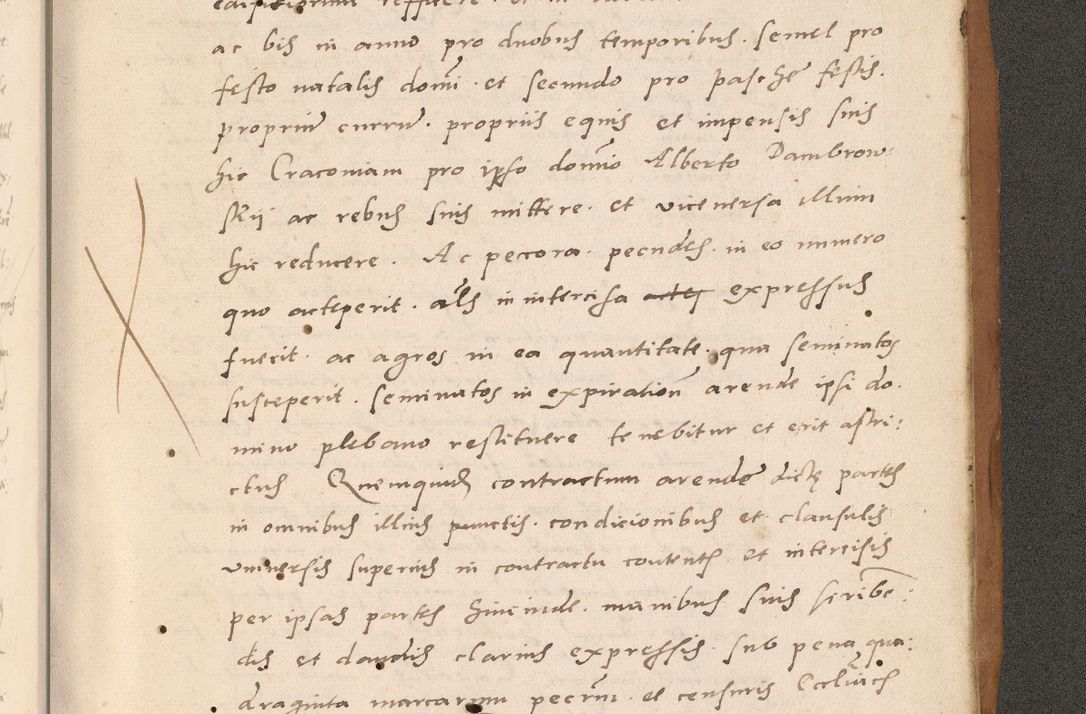 ac bis in anno pro duobus temporibus. semel pro
festo natalis domi͂ni. et secundo pro paschę festis.
propriu͂ curru͂. propriis equis et impensis suis
hic Cracouiam pro ipso domi͂o Alberto Dambrow-
skij ac rebus suis mittere. et viceuersa illum
hic reducere. Ac pecora. pecudes. in eo numero
quo acceperit. al͂s in intercisa expressus
fuerit. ac agros in ea quantitate. qua seminatos
susceperit. seminatos in expiratione͂ arende ipsi do.
mino plebano restituere tenebitur et erit astri:
ctus Quemquid contractum arendę dictę partes
in omnibus illius punctis. condicionibus et clausulis
vniuersis superius in contractu contentis et intercisis
per ipsas partes hincinde. manibus suis scribe͂:
dis et dandis clarius expressis. sub pena qua:
draginta marcarum pecu͂m. et censuris